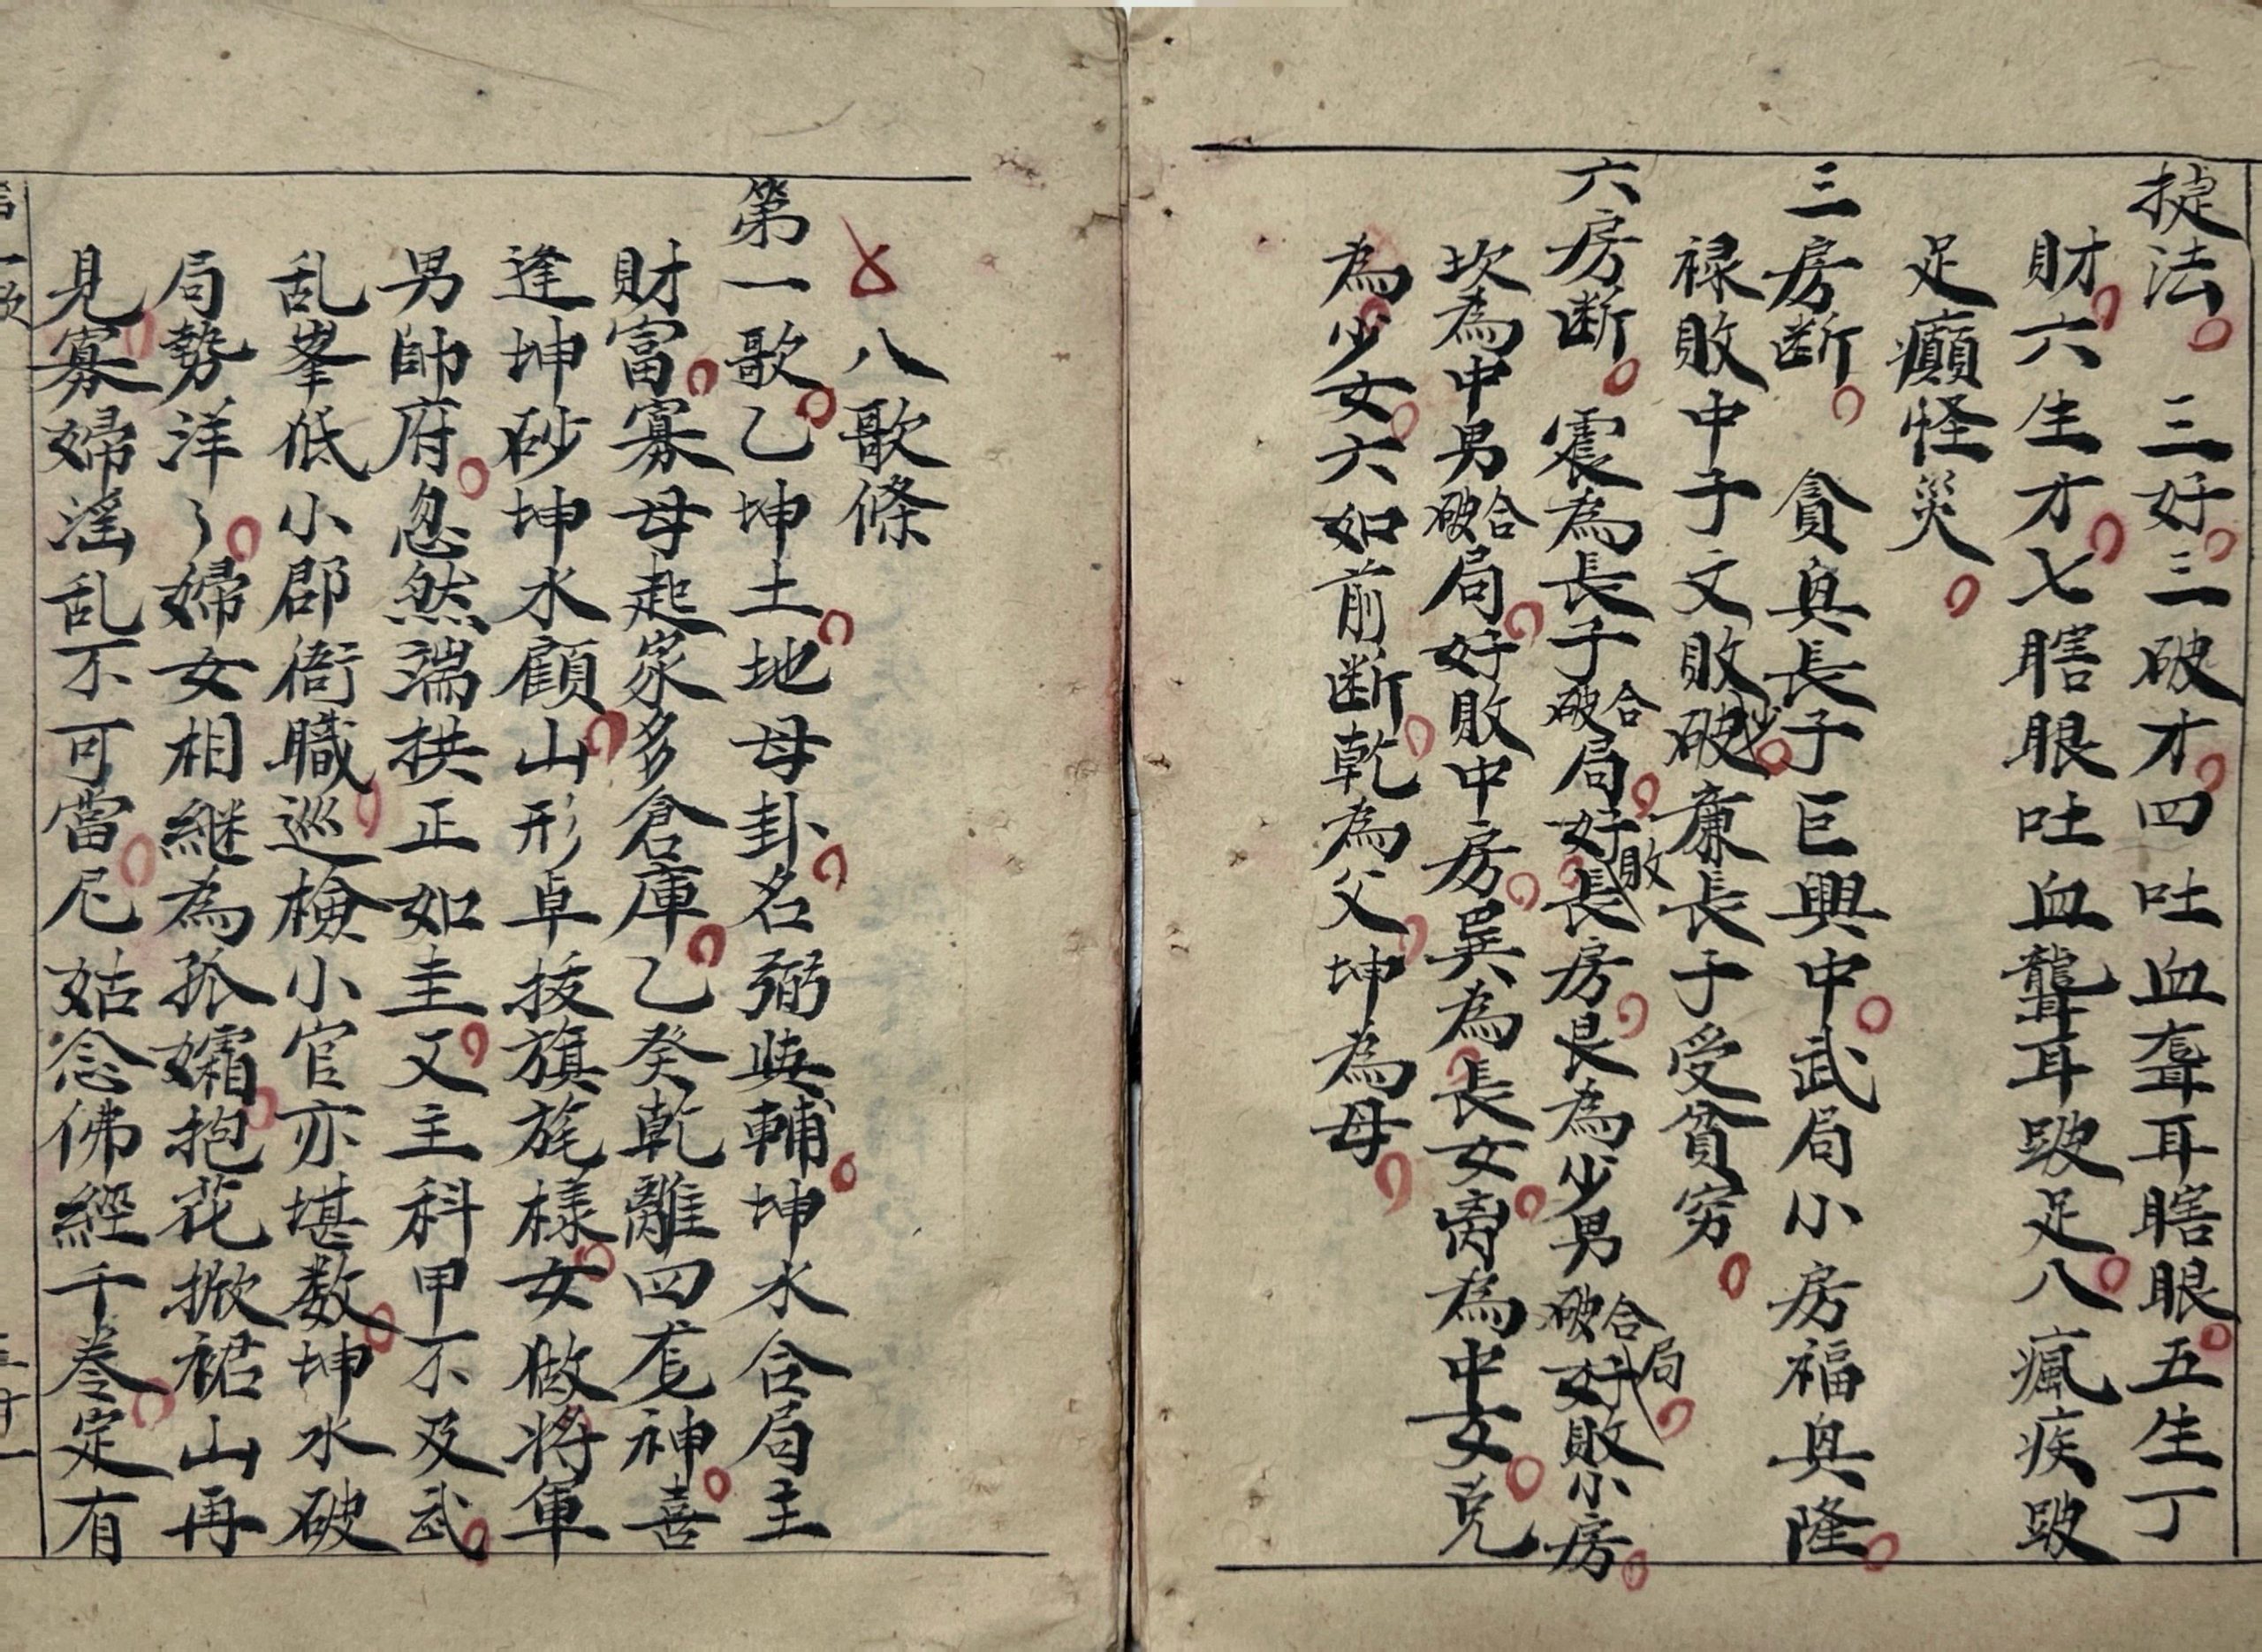 捷法三好三破才四吐血聾耳瞎眼五生丁
財六生才七瞎眼吐血聾耳跛足八瘋疾跛
足癲怪災
三房断貪與長子巨興中武局小房福與隆
禄敗中子文敗破廉長子受貧穷
六房断震為長子合破局好敗長房艮為少男合破局好敗小房
坎為中男合破局好敗中房巽為長女离為中女兑
為少女六如前断乾為父坤為母
八歌條
第一歌乙坤土地母卦名弼與輔坤水合局主
財富寡母起家多倉庫乙癸乾離四龙神喜
逢坤砂坤水顧山形卓拔旗旄樣女做将軍
男帥府忽然湍拱正如圭又主科甲不及武
乱峯低小郡衙職巡檢小官亦堪数坤水破
局勢洋々婦女相継為孤孀抱花掀裙山再
見寡婦滛乱不可當尼姑念佛經千卷定有